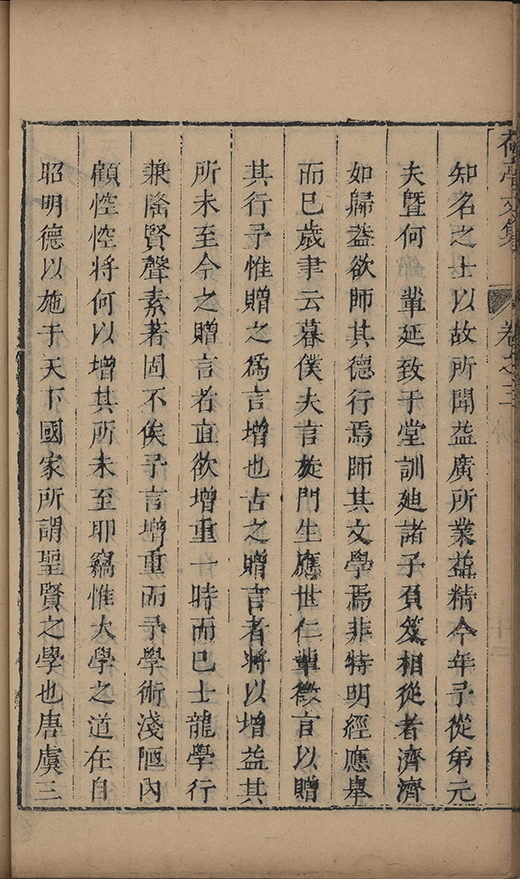 知名之士以故所聞益廣所業益精今年予從弟元
夫暨何 輩延致于堂訓廸諸子負笈相從者濟濟
如歸益欲師其德行焉師其文學焉非特明經應舉
而已歲聿云暮僕夫言旋門生應世仁輩徵言以贈
其行予惟贈之爲言增也古之贈言者將以增益其
所未至今之贈言者直欲增重一時而已士龍學行
兼隆賢聲素著固不俟予言增重而予學術淺陋內
顧悾悾將何以增其所未至耶竊惟大學之道在自
昭明德以施于天下國家所謂聖賢之學也唐虞三